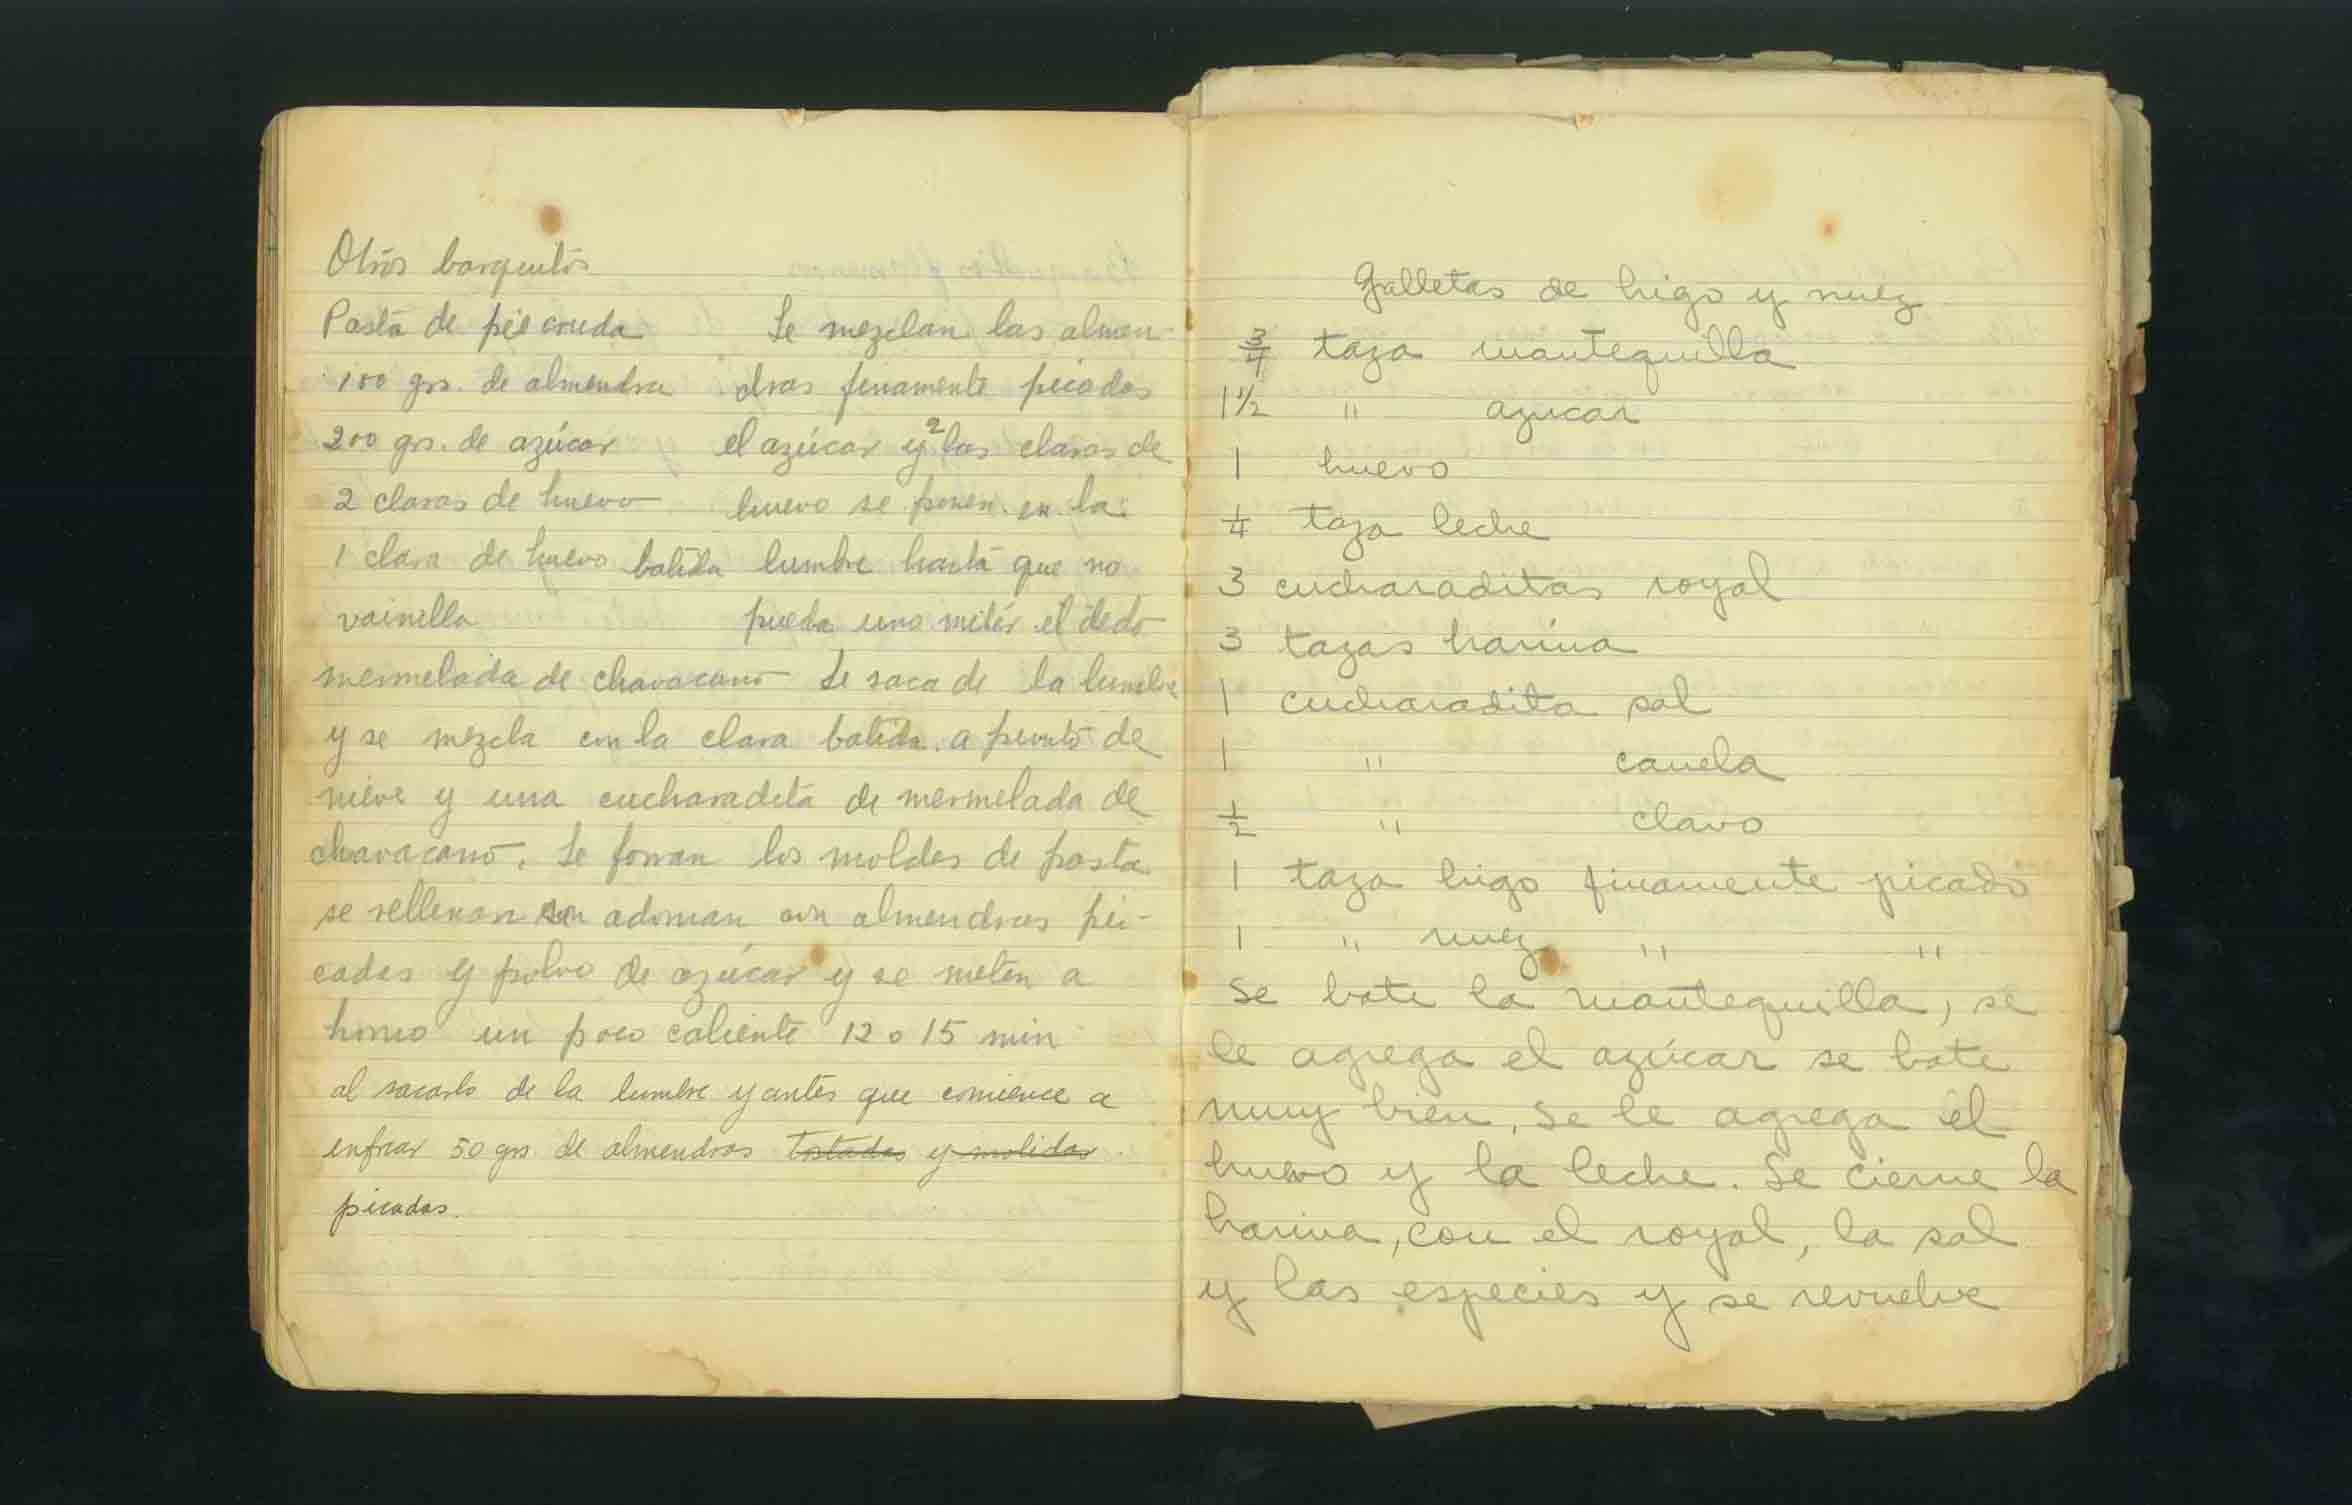 Otros barquitos
Pasta de pie cruda
100 grs. de almendra
200 grs. de azúcar
2 claras de huevo
1 clara de huevo batida
vainilla
mermelada de chavacano
Se mezclan las almen-
dras finamente picadas
el azúcar y 2 las claras de
huevo se ponen en la
lumbre hasta que no
pueda uno meter el dedo
Se saca de la lumbre
y se mezcla con la clara batida a punto de
nieve y una cucharadita de mermelada de
chavacano. Se forran los moldes de pasta
se rellenan adornan con almendras pi-
cadas y polvo de azúcar y se meten a
horno un poco caliente 12 o 15 min
al sacarlo de la lumbre y antes que comience a
enfriar 50 grs de almendras tostadas y molidas
picadas.
Galletas de higo y nuez
3/4 taza mantequilla
1 1/2 " azucar
1 huevo
1/4 taza leche
3 cucharaditas royal
3 tazas harina
1 cucharadita sal
1 " canela
1/2 " clavo
1 taza higo finamente picado
1 " nuez " "
Se bate la mantequilla, se
le agrega el azúcar se bate
muy bien, se le agrega el
huevo y la leche. Se cierne la
harina, con el royal, la sal
y las especies y se revuelve